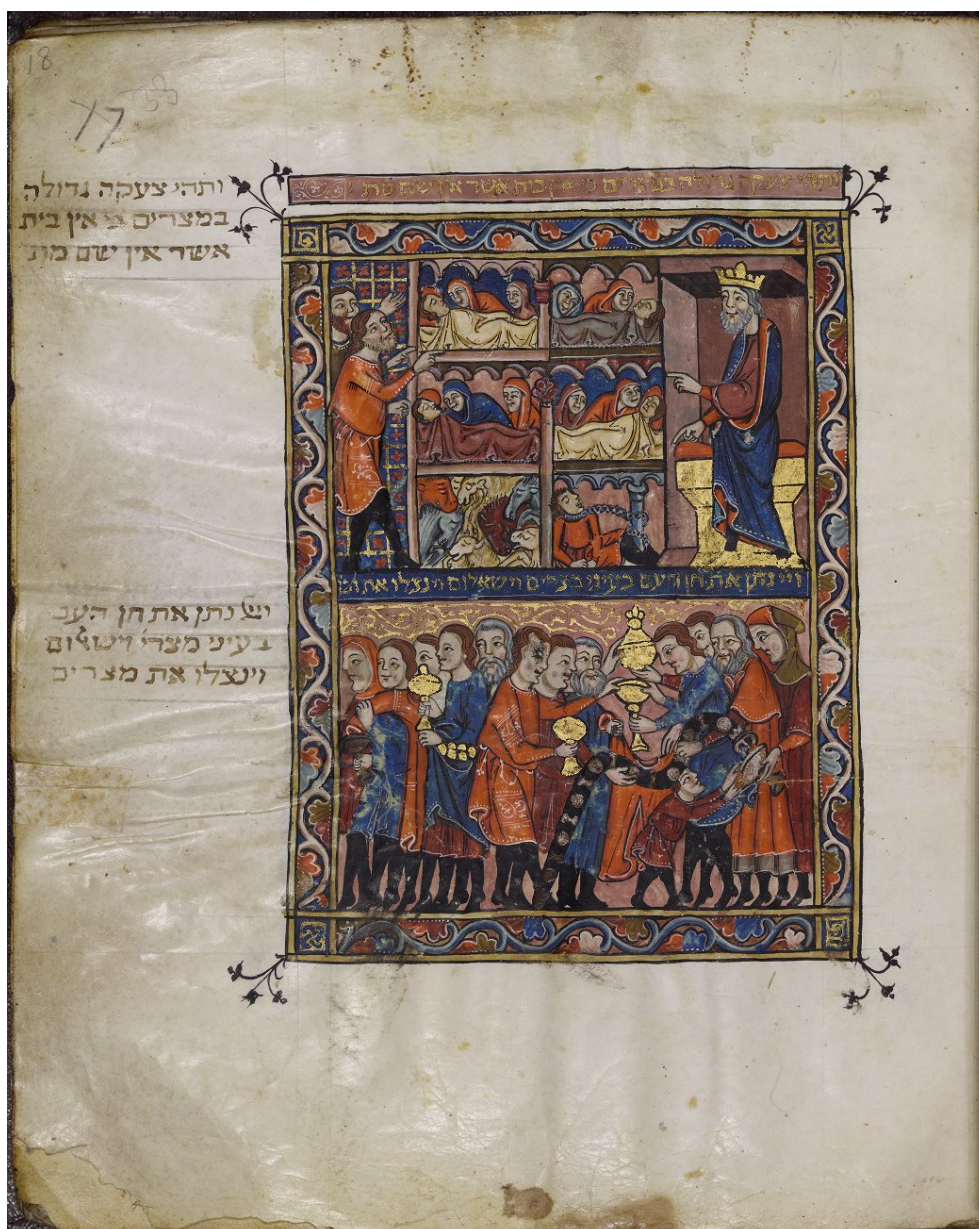 18
17
ותהי צעקה גדולה
במצרים כי אין בית
אשר אין שם מת
ותהי צעקה גדולה במצרים כי אין בית אשר אין שם מת
ויי נתן את חן העם בעיני מצרים וישאלום וינצלו את
נתן את חן העם
בעיני מצרי וישלום
וינצלו את מצרים